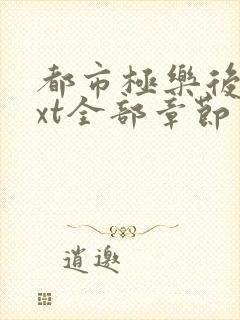 都市極樂後
xt全部章節
逍遨